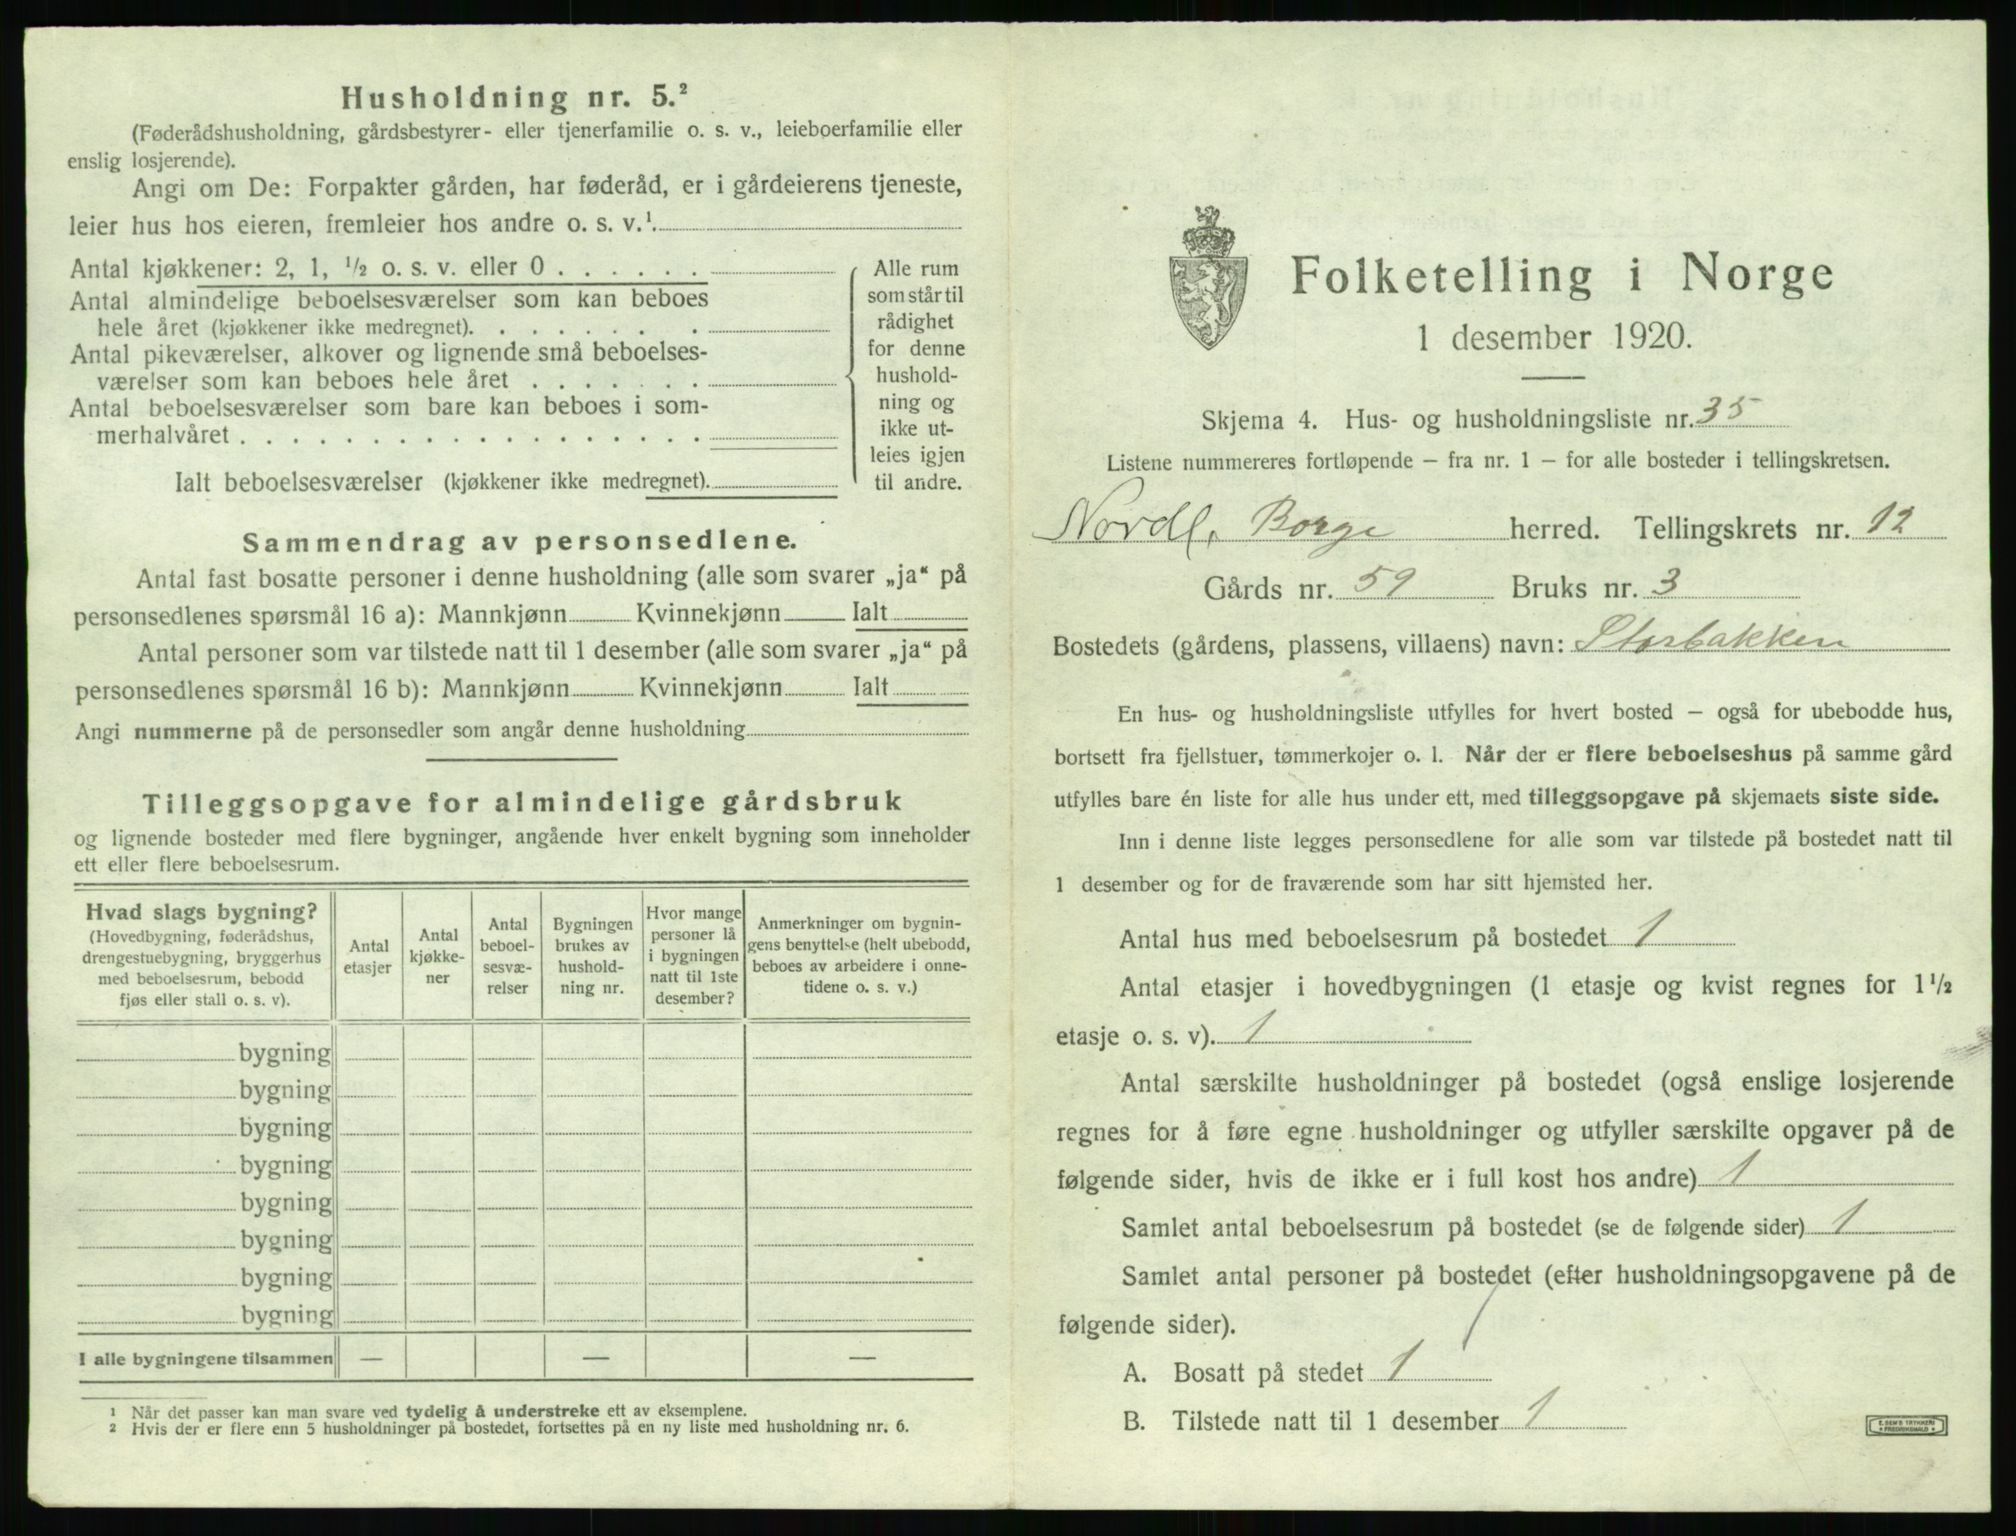 Husholdning nr. 5.²
(Føderådshusholdning, gårdsbestyrer- eller tjenerfamilie o. s. v., leieboerfamilie eller
enslig losjerende).
Angi om De: Forpakter gården, har føderåd, er i gårdeierens tjeneste,
leier hus hos eieren, fremleier hos andre o. s. v.¹
Antal kjøkkener: 2, 1, ½ o. s. v. eller 0 . . . . . .
Antal almindelige beboelsesværelser som kan beboes
hele året (kjøkkener ikke medregnet). . . . . . . .
Antal pikeværelser, alkover og lignende små beboelses-
værelser som kan beboes hele året . . . . . . .
Antal beboelsesværelser som bare kan beboes i som-
merhalvåret . . . . . . . . . . . . . . . . . .
Ialt beboelsesværelser (kjøkkener ikke medregnet).
Alle rum
som står til
rådighet
for denne
hushold-
ning og
ikke ut-
leies igjen
til andre.
Sammendrag av personsedlene.
Antal fast bosatte personer i denne husholdning (alle som svarer „ja“ på
personsedlenes spørsmål 16 a): Mannkjønn Kvinnekjønn Ialt
Antal personer som var tilstede natt til 1 desember (alle som svarer „ja“ på
personsedlenes spørsmål 16 b): Mannkjønn Kvinnekjønn Ialt
Angi nummerne på de personsedler som angår denne husholdning
Tilleggsopgave for almindelige gårdsbruk
og lignende bosteder med flere bygninger, angående hver enkelt bygning som inneholder
ett eller flere beboelsesrum.
Hvad slags bygning?
(Hovedbygning, føderådshus,
drengestuebygning, bryggerhus
med beboelsesrum, bebodd
fjøs eller stall o. s. v).
Antal
etasjer
Antal
kjøkke-
ner
Antal
beboel-
sesvæ-
relser
Bygningen
brukes av
hushold-
ning nr.
Hvor mange
personer lå
i bygningen
natt til 1ste
desember?
Anmerkninger om bygnin-
gens benyttelse (helt ubebodd,
beboes av arbeidere i onne-
tidene o. s. v.)
bygning
bygning
bygning
bygning
bygning
bygning
bygning
bygning
I alle bygningene tilsammen — — —
¹ Når det passer kan man svare ved tydelig å understreke ett av eksemplene.
² Hvis der er flere enn 5 husholdninger på bostedet, fortsettes på en ny liste med husholdning nr. 6.
Folketelling i Norge
1 desember 1920.
Skjema 4. Hus- og husholdningsliste nr. 35
Listene nummereres fortløpende – fra nr. 1 – for alle bosteder i tellingskretsen.
Nordl. Borge herred. Tellingskrets nr. 12
Gårds nr. 59 Bruks nr. 3
Bostedets (gårdens, plassens, villaens) navn: Storbakken
En hus- og husholdningsliste utfylles for hvert bosted – også for ubebodde hus,
bortsett fra fjellstuer, tømmerkojer o. l. Når der er flere beboelseshus på samme gård
utfylles bare én liste for alle hus under ett, med tilleggsopgave på skjemaets siste side.
Inn i denne liste legges personsedlene for alle som var tilstede på bostedet natt til
1 desember og for de fraværende som har sitt hjemsted her.
Antal hus med beboelsesrum på bostedet 1
Antal etasjer i hovedbygningen (1 etasje og kvist regnes for 1½
etasje o. s. v). 1
Antal særskilte husholdninger på bostedet (også enslige losjerende
regnes for å føre egne husholdninger og utfyller særskilte opgaver på de
følgende sider, hvis de ikke er i full kost hos andre) 1
Samlet antal beboelsesrum på bostedet (se de følgende sider) 1
Samlet antal personer på bostedet (efter husholdningsopgavene på de
følgende sider).
A. Bosatt på stedet 1
B. Tilstede natt til 1 desember 1
E. SEM'S TRYKKERI
FREDRIKSHALD